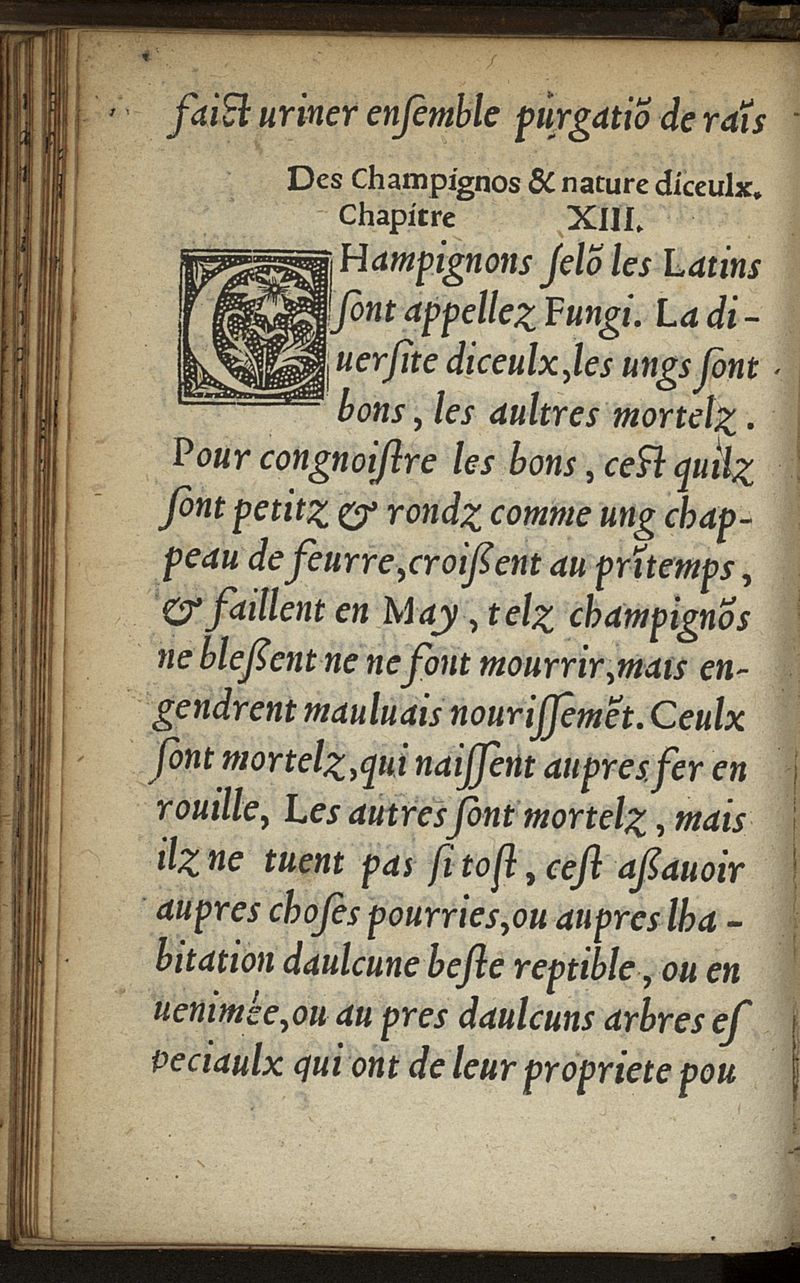 faict uriner enſemble purgatiõ de raĩs
Des Champignos & nature diceulx.
Chapitre XIII.
CHampignons ſelõ les Latins
ſont appellez Fungi. La di-
uerſite diceulx, les ungs ſont
bons, les aultres mortelz.
Pour congnoiſtre les bons, ceſt quilz
ſont petitz & rondz comme ung chap-
peau de feurre, croiſſent au prĩtemps,
& faillent en May, telz champignõs
ne bleſſent ne ne font mourrir, mais en-
gendrent mauluais nouriſſemẽt. Ceulx
ſont mortelz, qui naiſſent aupres fer en
rouille, Les autres ſont mortelz, mais
ilz ne tuent pas ſi toſt, ceſt aſſauoir
aupres choſes pourries, ou aupres lha-
bitation daulcune beſte reptible, ou en
uenimée, ou au pres daulcuns arbres eſ
peciaulx qui ont de leur propriete pou